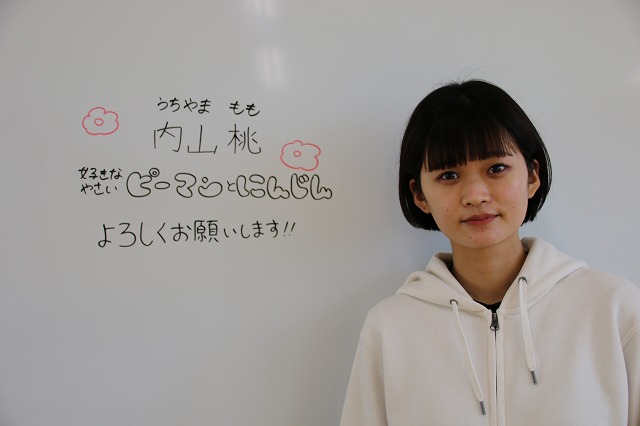 うちやま もも
内山 桃
好きな
やさい ピーマンとにんじん
よろしくお願いします!!